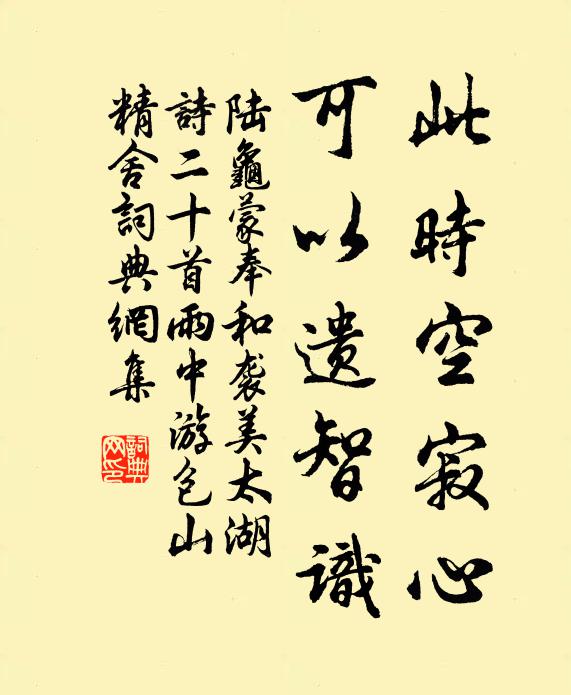 此時空寂心
可以遺智識
陆龜蒙奉和袭美太湖
詩二十首雨中游包山
精舍詞典網集
詞典網印